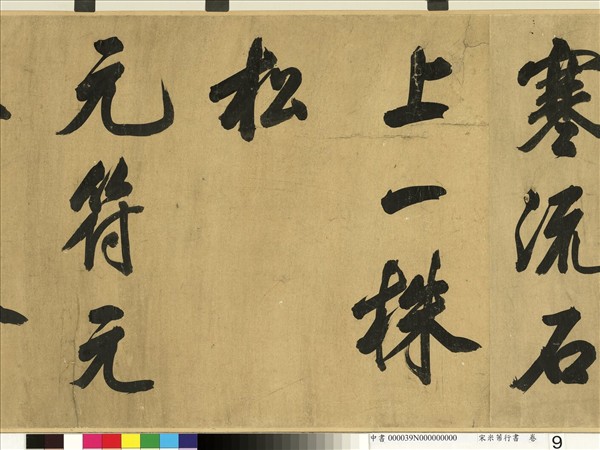 寒流石
上一株
松
元符元
中書 000039N000000000 宋米芾行書 卷
9